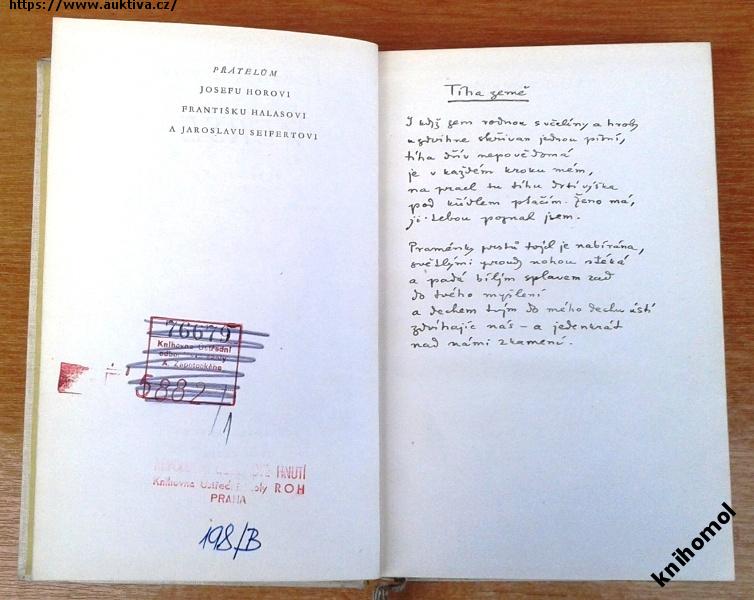 https://www.auktiva.cz/
PŘÁTELŮM
JOSEFU HOROVI
FRANTIŠKU HALASOVI
A JAROSLAVU SEIFERTOVI
76679
Knihovna Ústřední
odbor.
A. Zápotockého
58827
/1
HNUTÍ
Knihovna Ústřední školy ROH
PRAHA
198/B
Tíha země
I když zem rodnou s včelíny a hroby
uzdvihne skřivan jednou písní,
tíha dřív nepovědomá
je v každém kroku mém,
na prach tu tíhu drtí výška
pod křídlem ptačím. Ženo má,
ji tebou poznal jsem.
Praménky prstů tvých je nabírána,
světlými proudy nohou stéká
a padá bílým splavem zad
do tvého myšlení
a dechem tvým do mého dechu ústí
zdvihajíc nás – a jedenkrát
nad námi zkamení.
knihomol